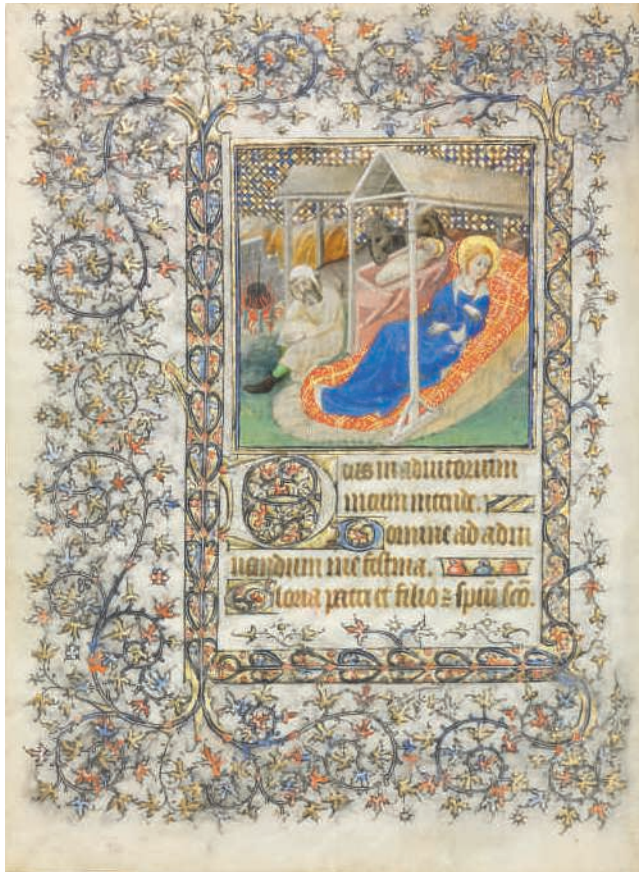 Deus in adiutorium
meum intende.
Domine ad adiu
uandum me festina.
Gloria patri et filio ⁊ spiu sco.